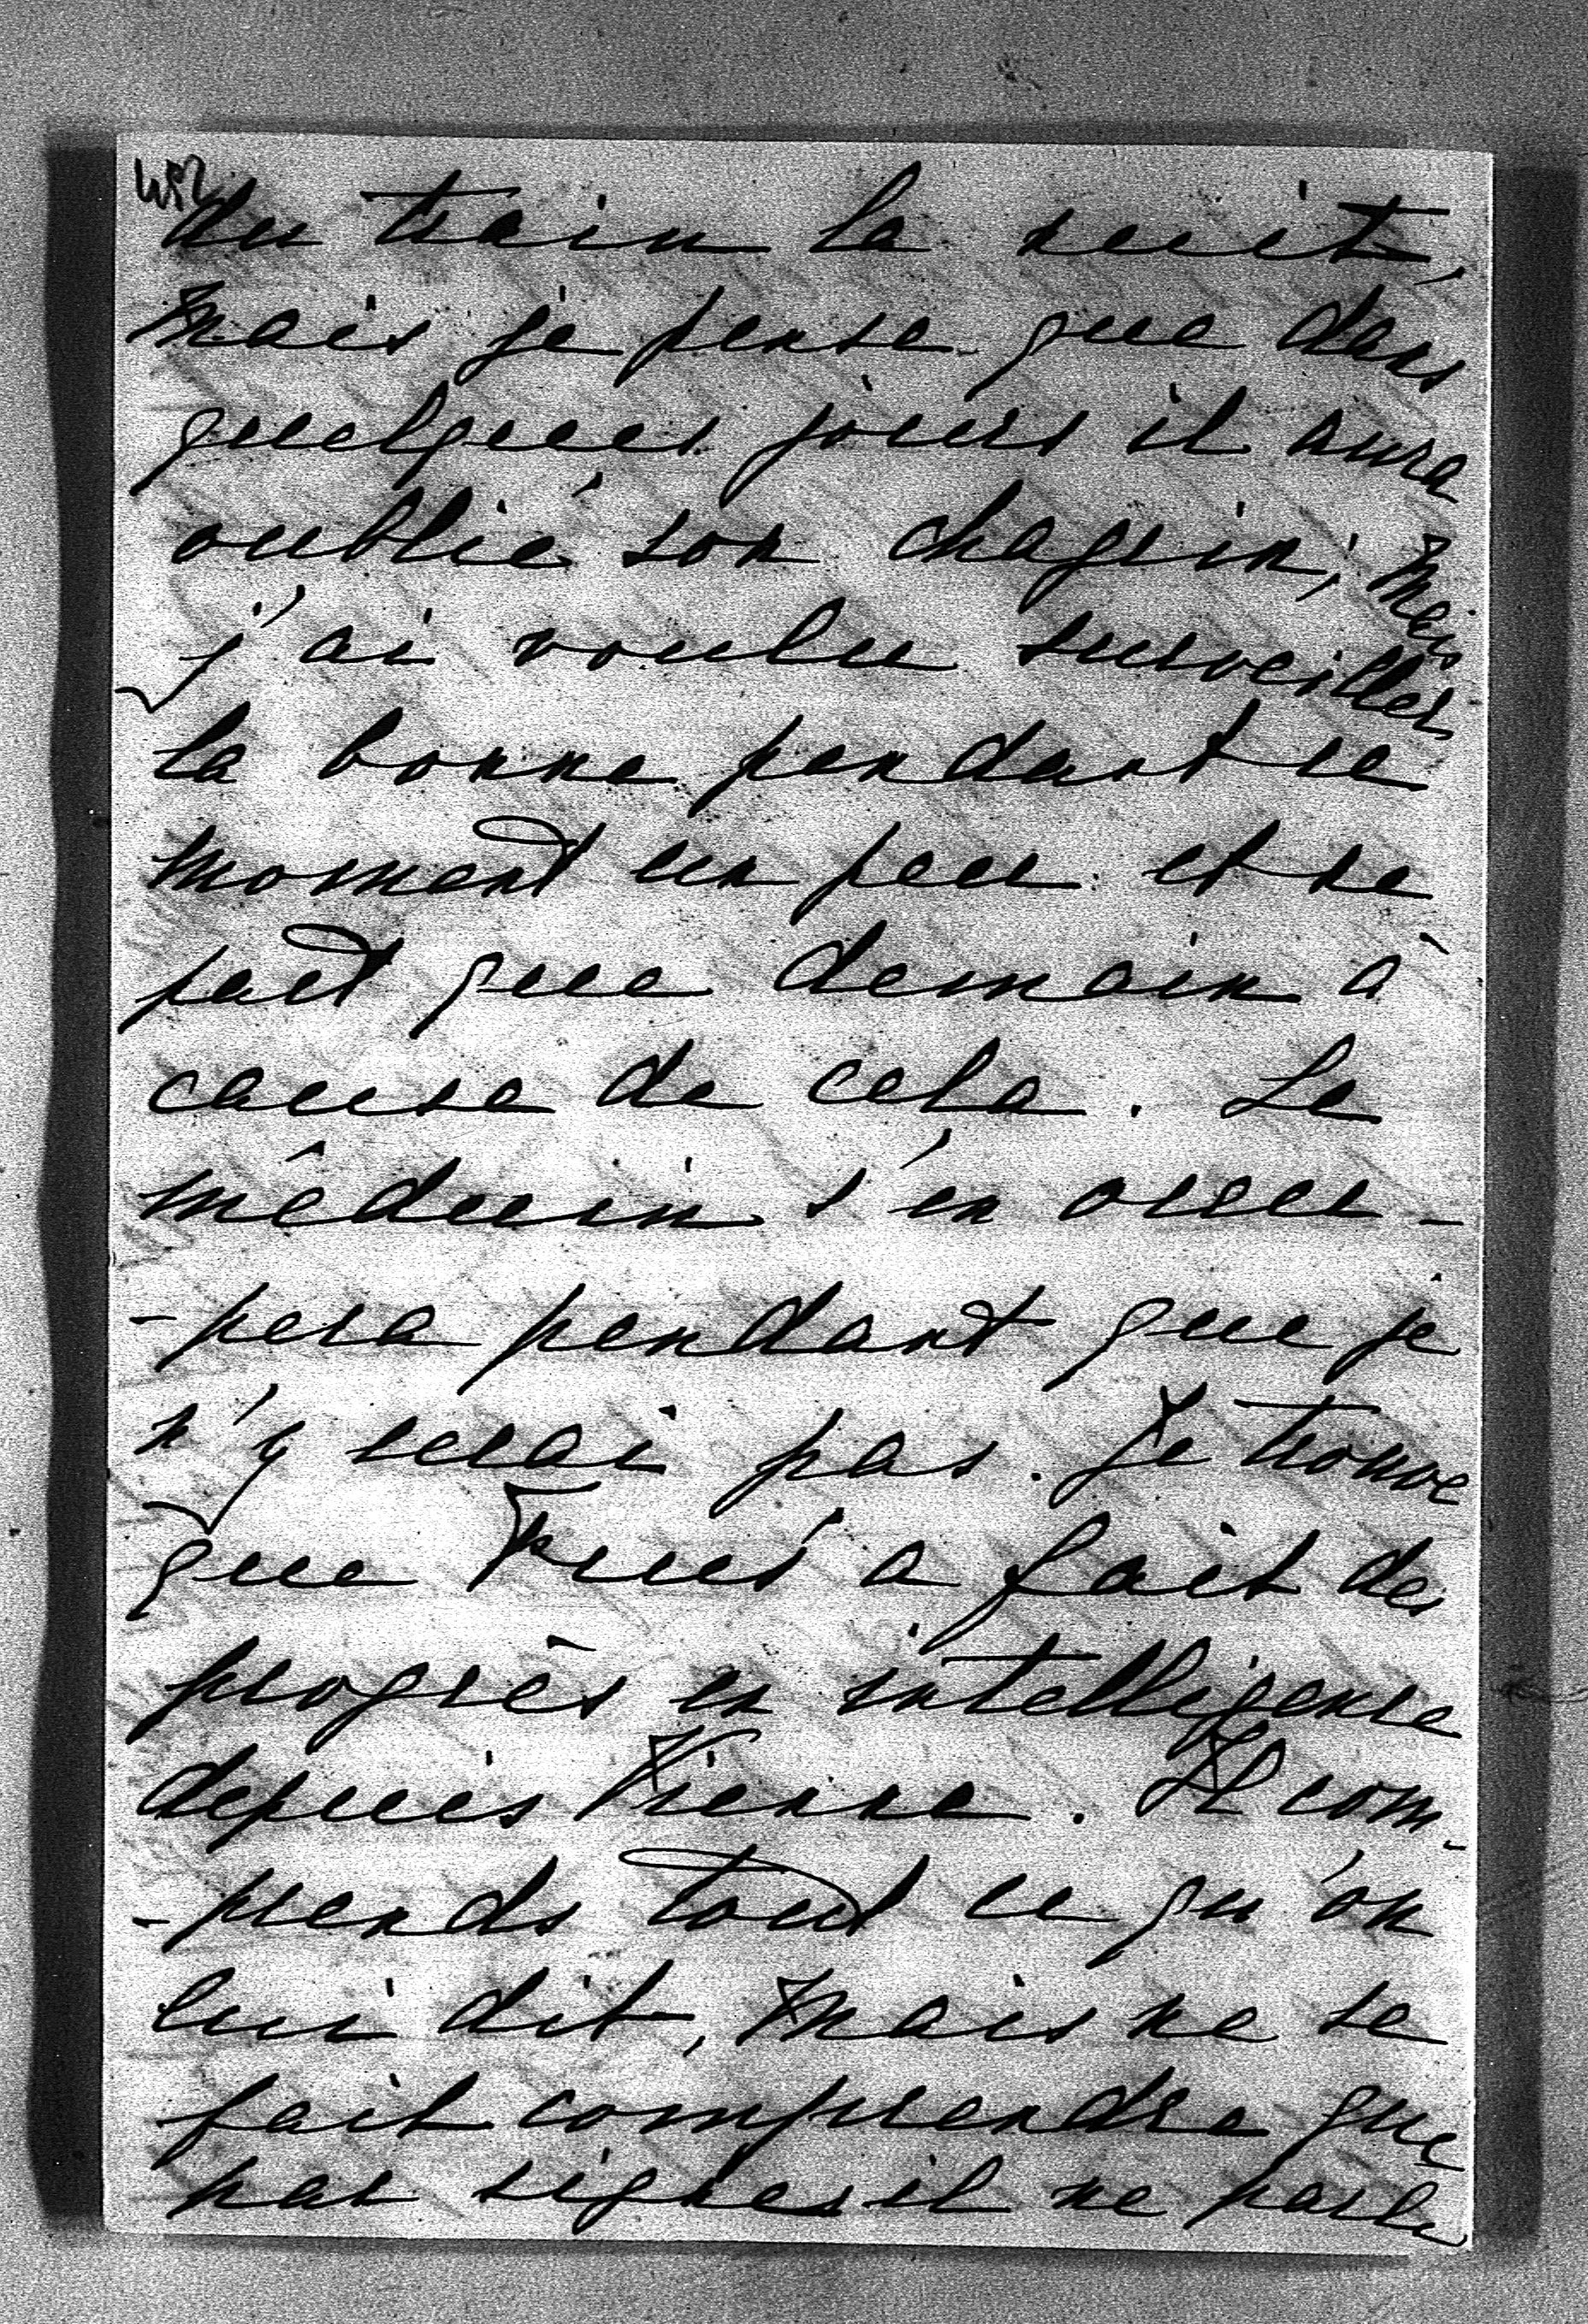 du train la nuit,
mais je pense que dans
quelques jours il aura
oublié son chagrin; mais
j'ai voulu surveiller
la bonne pendant ce
moment un peu et ne
part que demain à
cause de cela. Le
mêdecin s'en occu-
-pera pendant que je
n'y serai pas. Je trouve
que a fait des
progrès en intelligence
depuis Vienne. Il com-
-prends tout ce qu'on
lui dit, mais ne se
fait comprendre que
par signes il ne parle